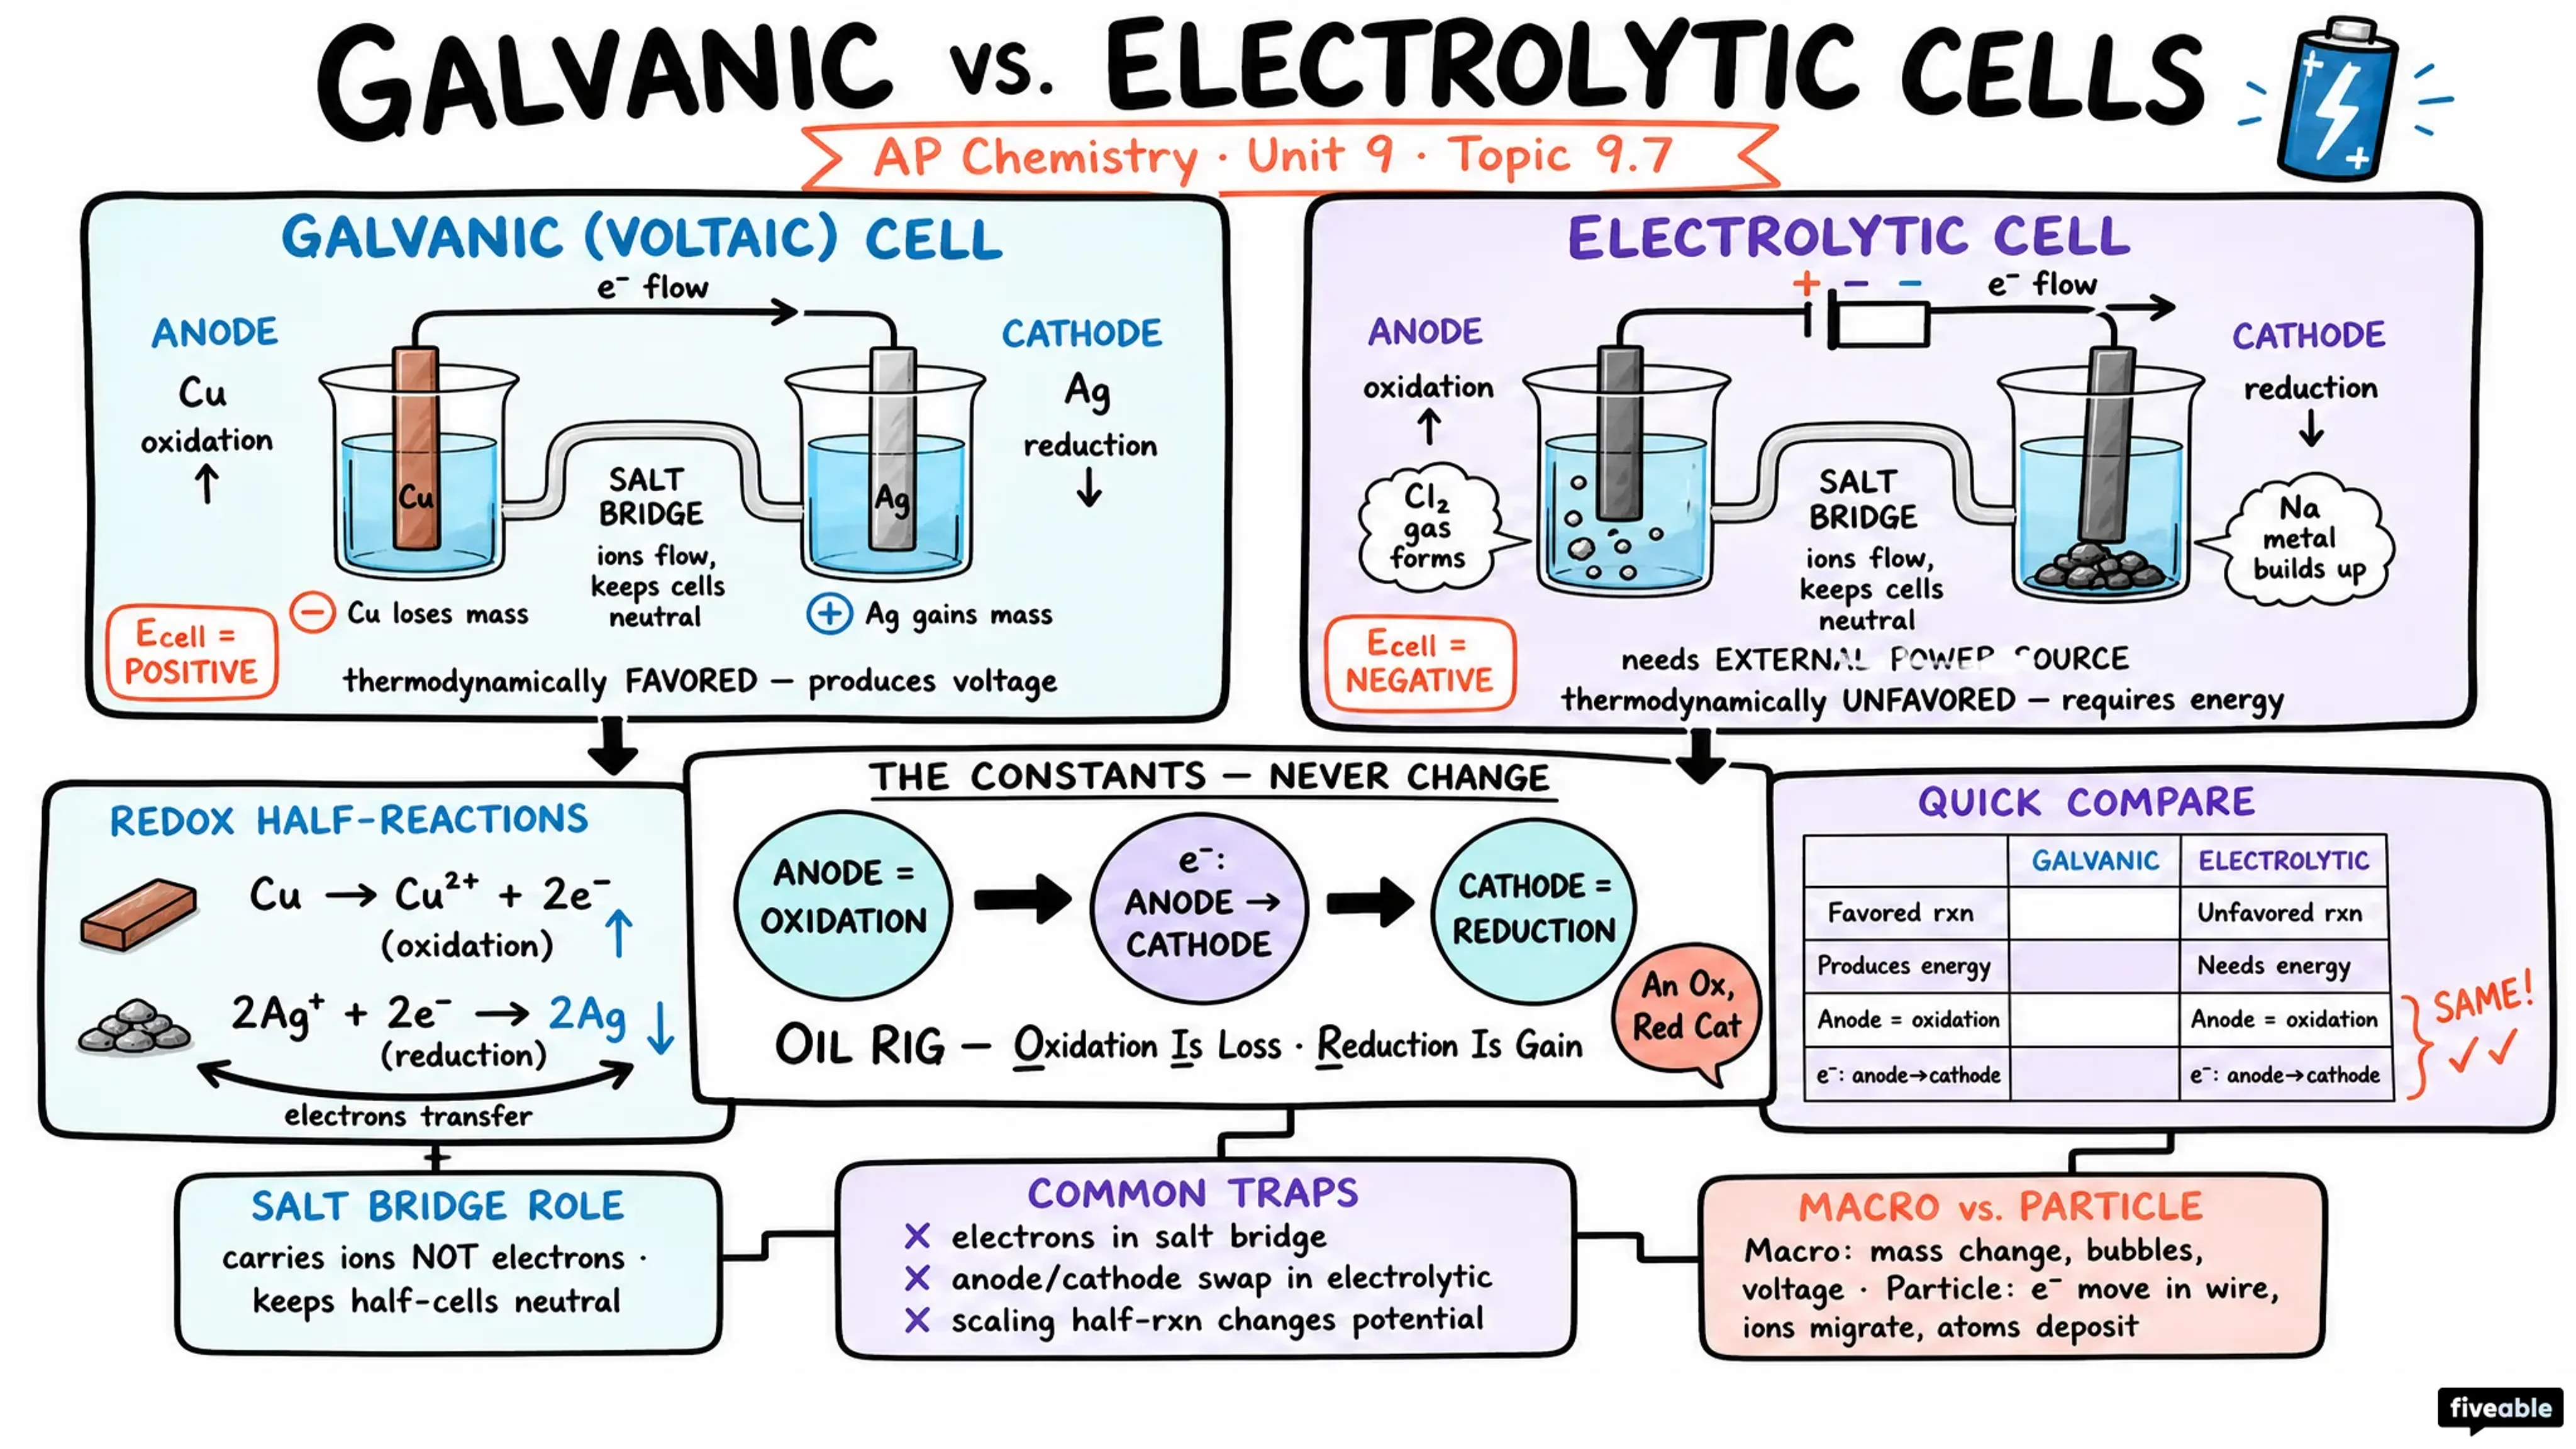 GALVANIC vs. ELECTROLYTIC CELLS
AP Chemistry · Unit 9 · Topic 9.7
GALVANIC (VOLTAIC) CELL
e⁻ flow
ANODE
Cu
oxidation
↑
CATHODE
Ag
reduction
↓
Cu
Ag
SALT
BRIDGE
ions flow,
keeps cells
neutral
− Cu loses mass
+ Ag gains mass
Ecell =
POSITIVE
thermodynamically FAVORED — produces voltage
ELECTROLYTIC CELL
+ − −
e⁻ flow
ANODE
oxidation
↑
Cl₂
gas
forms
CATHODE
reduction
↓
Na
metal
builds up
SALT
BRIDGE
ions flow,
keeps cells
neutral
Ecell =
NEGATIVE
needs EXTERNAL POWER SOURCE
thermodynamically UNFAVORED — requires energy
REDOX HALF-REACTIONS
Cu → Cu²⁺ + 2e⁻
(oxidation) ↑
2Ag⁺ + 2e⁻ → 2Ag ↓
(reduction)
electrons transfer
THE CONSTANTS — NEVER CHANGE
ANODE =
OXIDATION
e⁻:
ANODE →
CATHODE
CATHODE =
REDUCTION
An Ox,
Red Cat
OIL RIG — Oxidation Is Loss · Reduction Is Gain
QUICK COMPARE
GALVANIC ELECTROLYTIC
Favored rxn Unfavored rxn
Produces energy Needs energy
Anode = oxidation Anode = oxidation
e⁻: anode→cathode e⁻: anode→cathode
SAME!
✓✓
SALT BRIDGE ROLE
carries ions NOT electrons ·
keeps half-cells neutral
COMMON TRAPS
✗ electrons in salt bridge
✗ anode/cathode swap in electrolytic
✗ scaling half-rxn changes potential
MACRO vs. PARTICLE
Macro: mass change, bubbles,
voltage · Particle: e⁻ move in wire,
ions migrate, atoms deposit
fiveable